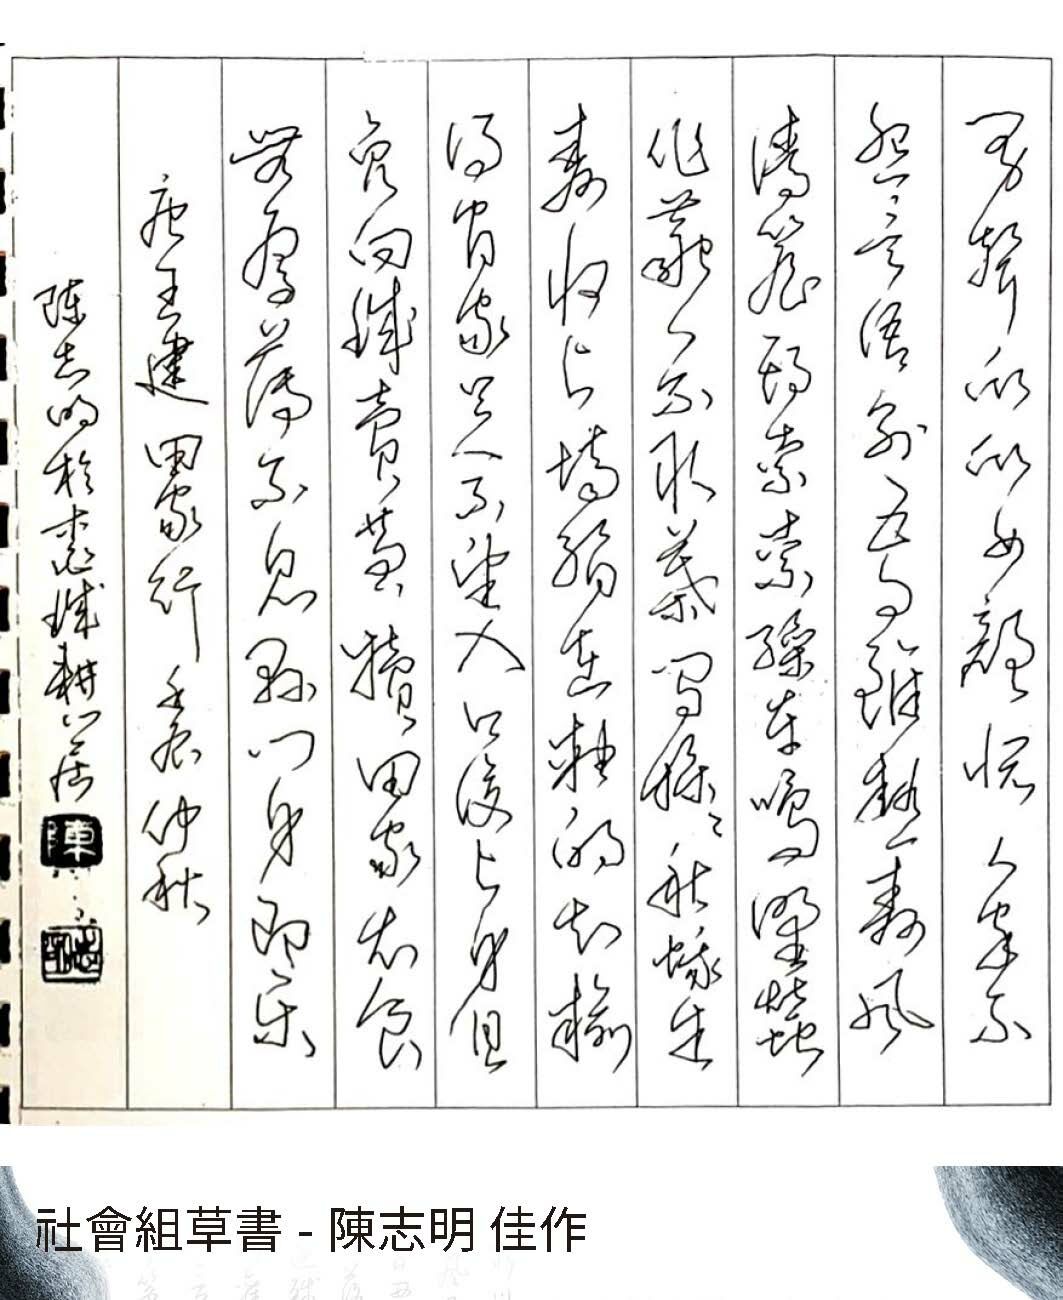 男聲欣欣女顏悅人家不
怨言語別五月雖熱麥風
清簷頭索索繅車鳴野蠶
作繭人不取葉間撲撲秋蛾生
麥收上場絹在軸的知輸
得官家足不望入口復上身且
免向城賣黃犢田家衣食
無厚薄不見縣門身即樂
唐王建田家行壬辰仲秋
陳志明於耕心居
陳
社會組草書 - 陳志明 佳作